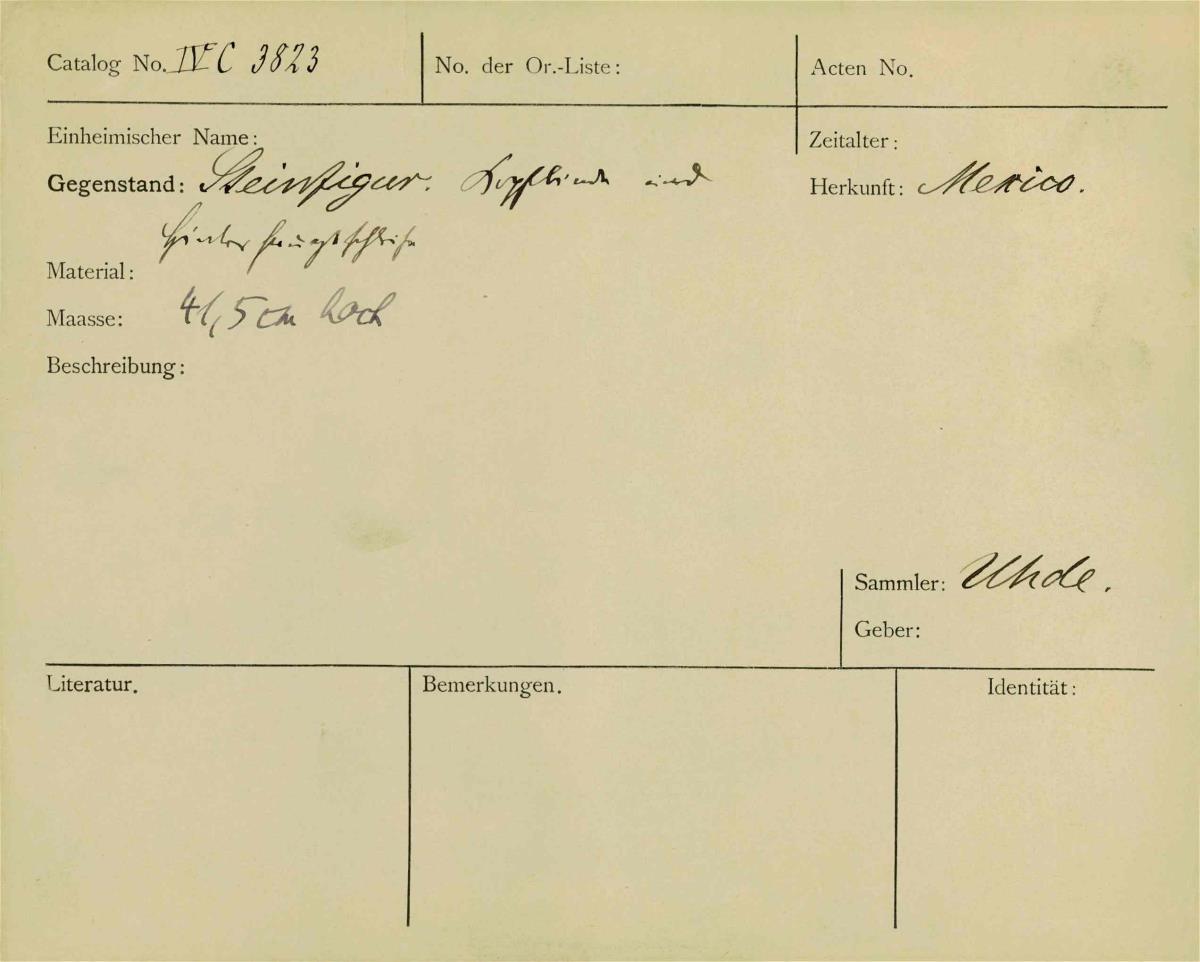 Catalog No. IV C 3823
No. der Or.-Liste:
Acten No.
Einheimischer Name:
Zeitalter:
Gegenstand: Steinfigur. Kopfbinde und
Hinterhauptschleife
Herkunft: Mexico.
Material:
Maasse: 41,5 cm hoch
Beschreibung:
Sammler: Uhde.
Geber:
Literatur.
Bemerkungen.
Identität: